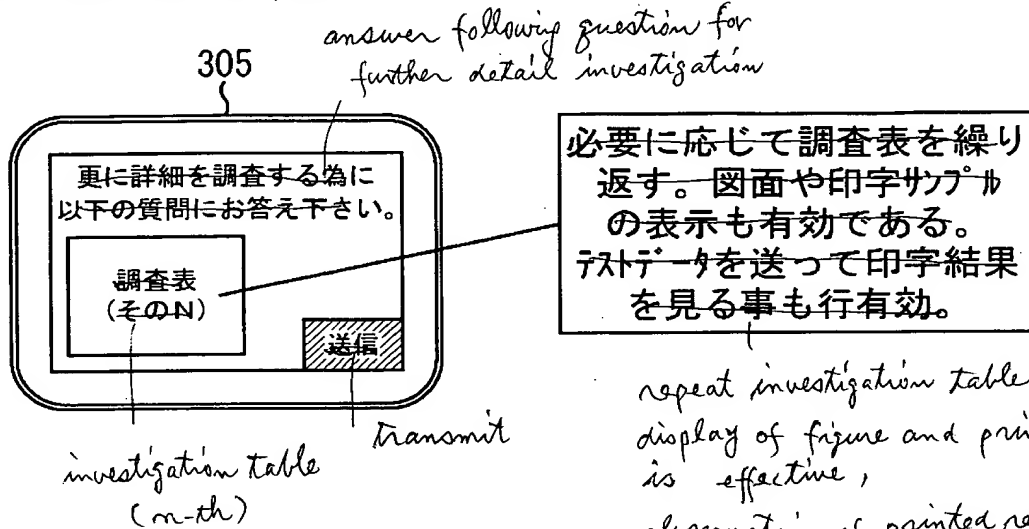 answer following question for
further detail investigation
305
更に詳細を調査する為に
以下の質問にお答え下さい。
調査表
(そのN)
送信
必要に応じて調査表を繰り
返す。図面や印字ｻﾝﾌﾟﾙ
の表示も有効である。
ﾃｽﾄﾃﾞｰﾀを送って印字結果
を見る事も行有効。
transmit
investigation table
(n-th)
repeat investigation table
display of figure and
is effective,
of printed